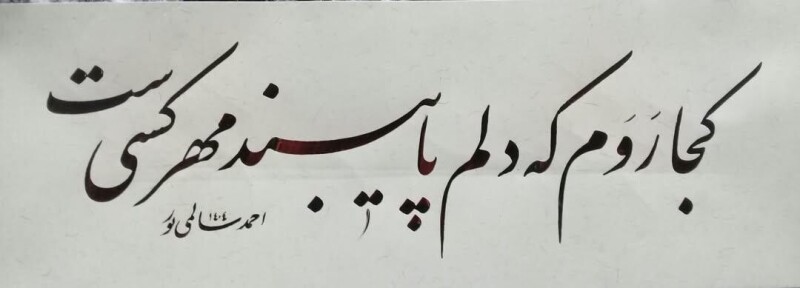 کجا رَوَم که دلم پایبند مهر کسی ست
احمد سالمی پور ۱۴۰۴